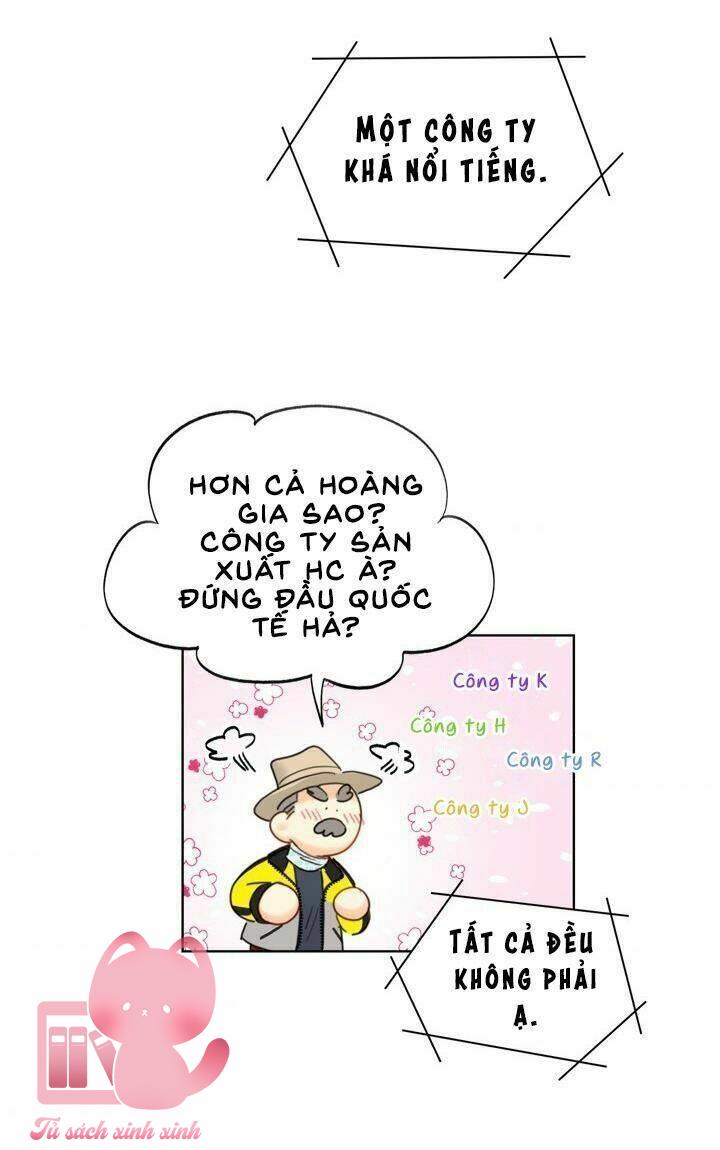 MỘT CÔNG TY
KHÁ NỔI TIẾNG.
HƠN CẢ HOÀNG
GIA SAO?
CÔNG TY SẢN
XUẤT HC À?
ĐỨNG ĐẦU QUỐC
TẾ HẢ?
Công ty K
Công ty H
Công ty R
Công ty J
TẤT CẢ ĐỀU
KHÔNG PHẢI
Ạ.
Tủ sách xinh xinh